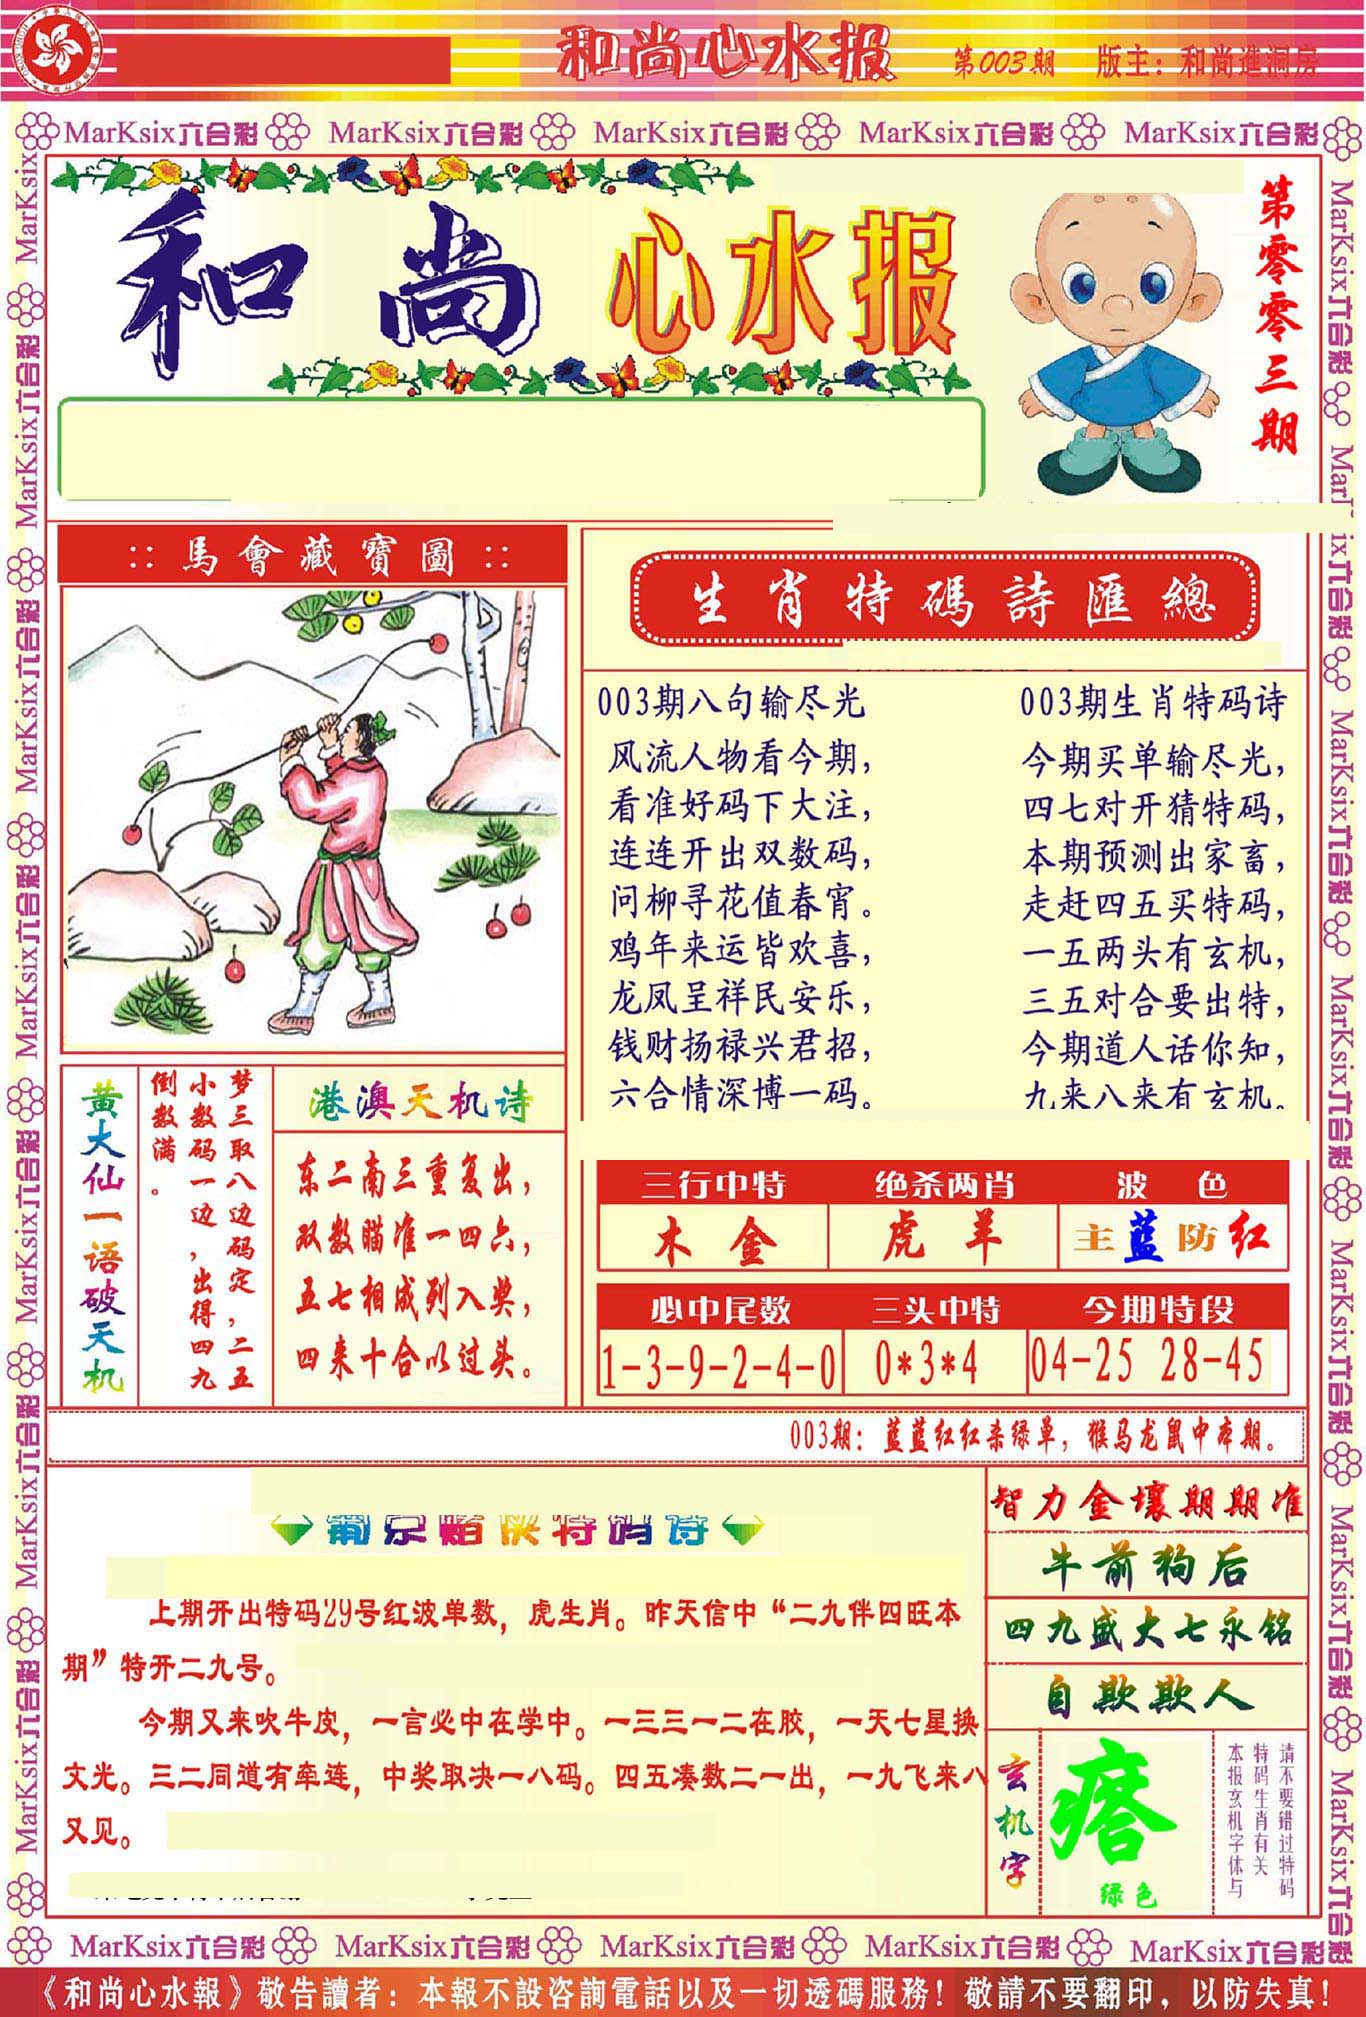 和尚心水报
第003期
版主：和尚進洞房
MarKsix六合彩 MarKsix六合彩 MarKsix六合彩 MarKsix六合彩 MarKsix六合彩
和尚心水报
第零零三期
::馬會藏寶圖::
生肖特碼詩匯總
003期八句输尽光
风流人物看今期，
看准好码下大注，
连连开出双数码，
问柳寻花值春宵。
鸡年来运皆欢喜，
龙凤呈祥民安乐，
钱财扬禄兴君招，
六合情深博一码。
003期生肖特码诗
今期买单输尽光，
四七对开猜特码，
本期预测出家畜，
走赶四五买特码，
一五两头有玄机，
三五对合要出特，
今期道人话你知，
九来八来有玄机。
黄大仙一语破天机
梦三取八边码定，二五
小数码一边，出得四九
倒数满。
港澳天机诗
东二南三重复出，
双数瞄准一四六，
五七相成列入奖，
四来十合以过头。
三行中特 绝杀两肖 波色
木金 虎羊 主蓝防红
必中尾数 三头中特 今期特段
1-3-9-2-4-0 0*3*4 04-25 28-45
003期：蓝蓝红红杀绿单，猴马龙鼠中本期。
葡京赌侠特码诗
上期开出特码29号红波单数，虎生肖。昨天信中“二九伴四旺本
期”特开二九号。
今期又来吹牛皮，一言必中在学中。一三三一二在胶，一天七星换
文光。三二同道有牵连，中奖取决一八码。四五凑数二一出，一九飞来八
又见。
智力金壤期期准
牛前狗后
四九盛大七永铭
自欺欺人
玄机字
瘩
绿色
请不要错过特码
特码生肖有关
本报玄机字体与
MarKsix六合彩 MarKsix六合彩 MarKsix六合彩 MarKsix六合彩 MarKsix六合彩
《和尚心水報》敬告讀者：本報不設咨詢電話以及一切透碼服務！敬請不要翻印，以防失真！